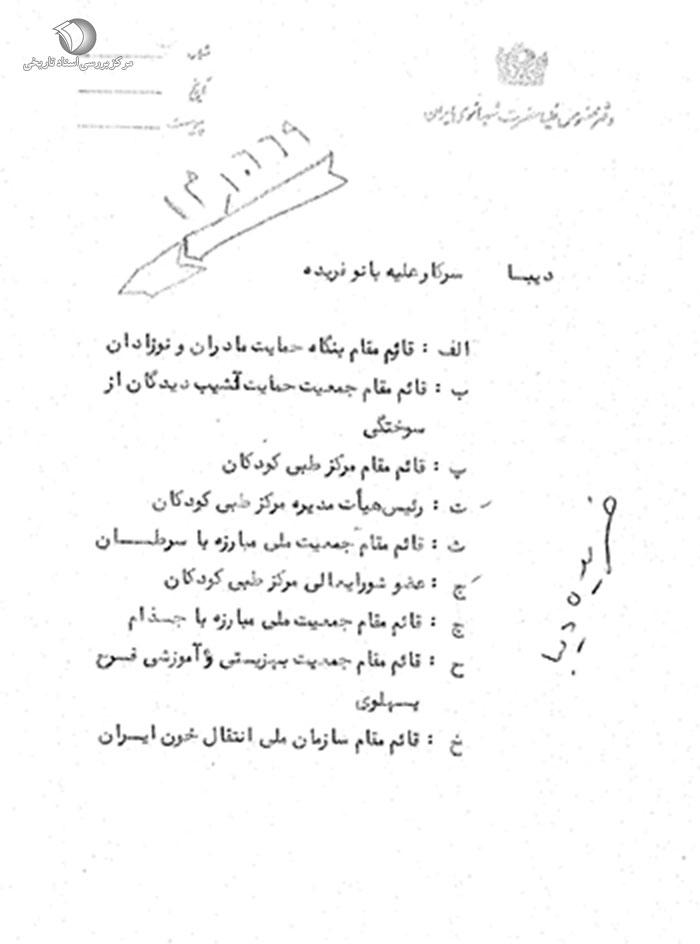 مرکز بررسی اسناد تاریخی
شماره
تاریخ
پیوست
دفتر مخصوص علیاحضرت شهبانوی ایران
۱۳۱۰۶۶۹
دیبا سرکار علیه بانو فریده
الف : قائم مقام بنگاه حمایت مادران و نوزادان
ب : قائم مقام جمعیت حمایت آسیب دیدگان از
سوختگی
پ : قائم مقام مرکز طبی کودکان
ت : رئیس هیأت مدیره مرکز طبی کودکان
ث : قائم مقام جمعیت ملی مبارزه با سرطان
ج : عضو شورایعالی مرکز طبی کودکان
چ : قائم مقام جمعیت ملی مبارزه با جذام
ح : قائم مقام جمعیت بهزیستی و آموزشی فرح
پهلوی
خ : قائم مقام سازمان ملی انتقال خون ایران
فریده دیبا